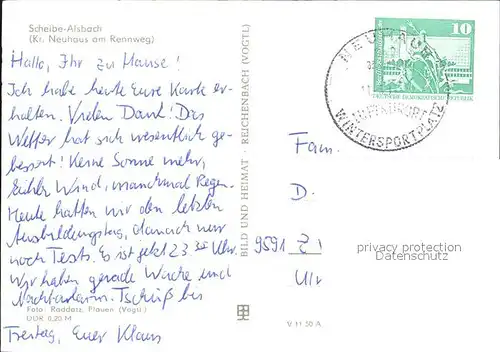 Scheibe-Alsbach
(Kr. Neuhaus am Rennweg)
Hallo, Ihr zu Hause!
Ich habe heute Eure Karte er-
halten. Vielen Dank! Das
Wetter hat sich wesentlich ge-
bessert! Keine Sonne mehr,
kühler Wind, manchmal Regen.
Heute hatten wir den letzten
Ausbildungstag, danach nur
noch Tests. Es ist jetzt 23 35 Uhr.
Wir haben gerade Wache und
Tschüß bis
Foto: Raddatz, Plauen (Vogtl.)
DDR 0,20 M
Freitag, Euer Klaus
BILD UND HEIMAT · REICHENBACH (VOGTL)
V 11 50 A
10
DEUTSCHE DEMOKRATISCHE REPUBLIK
WINTERSPORTPLATZ
Fam.
D.
9591 Z
privacy protection
watermark